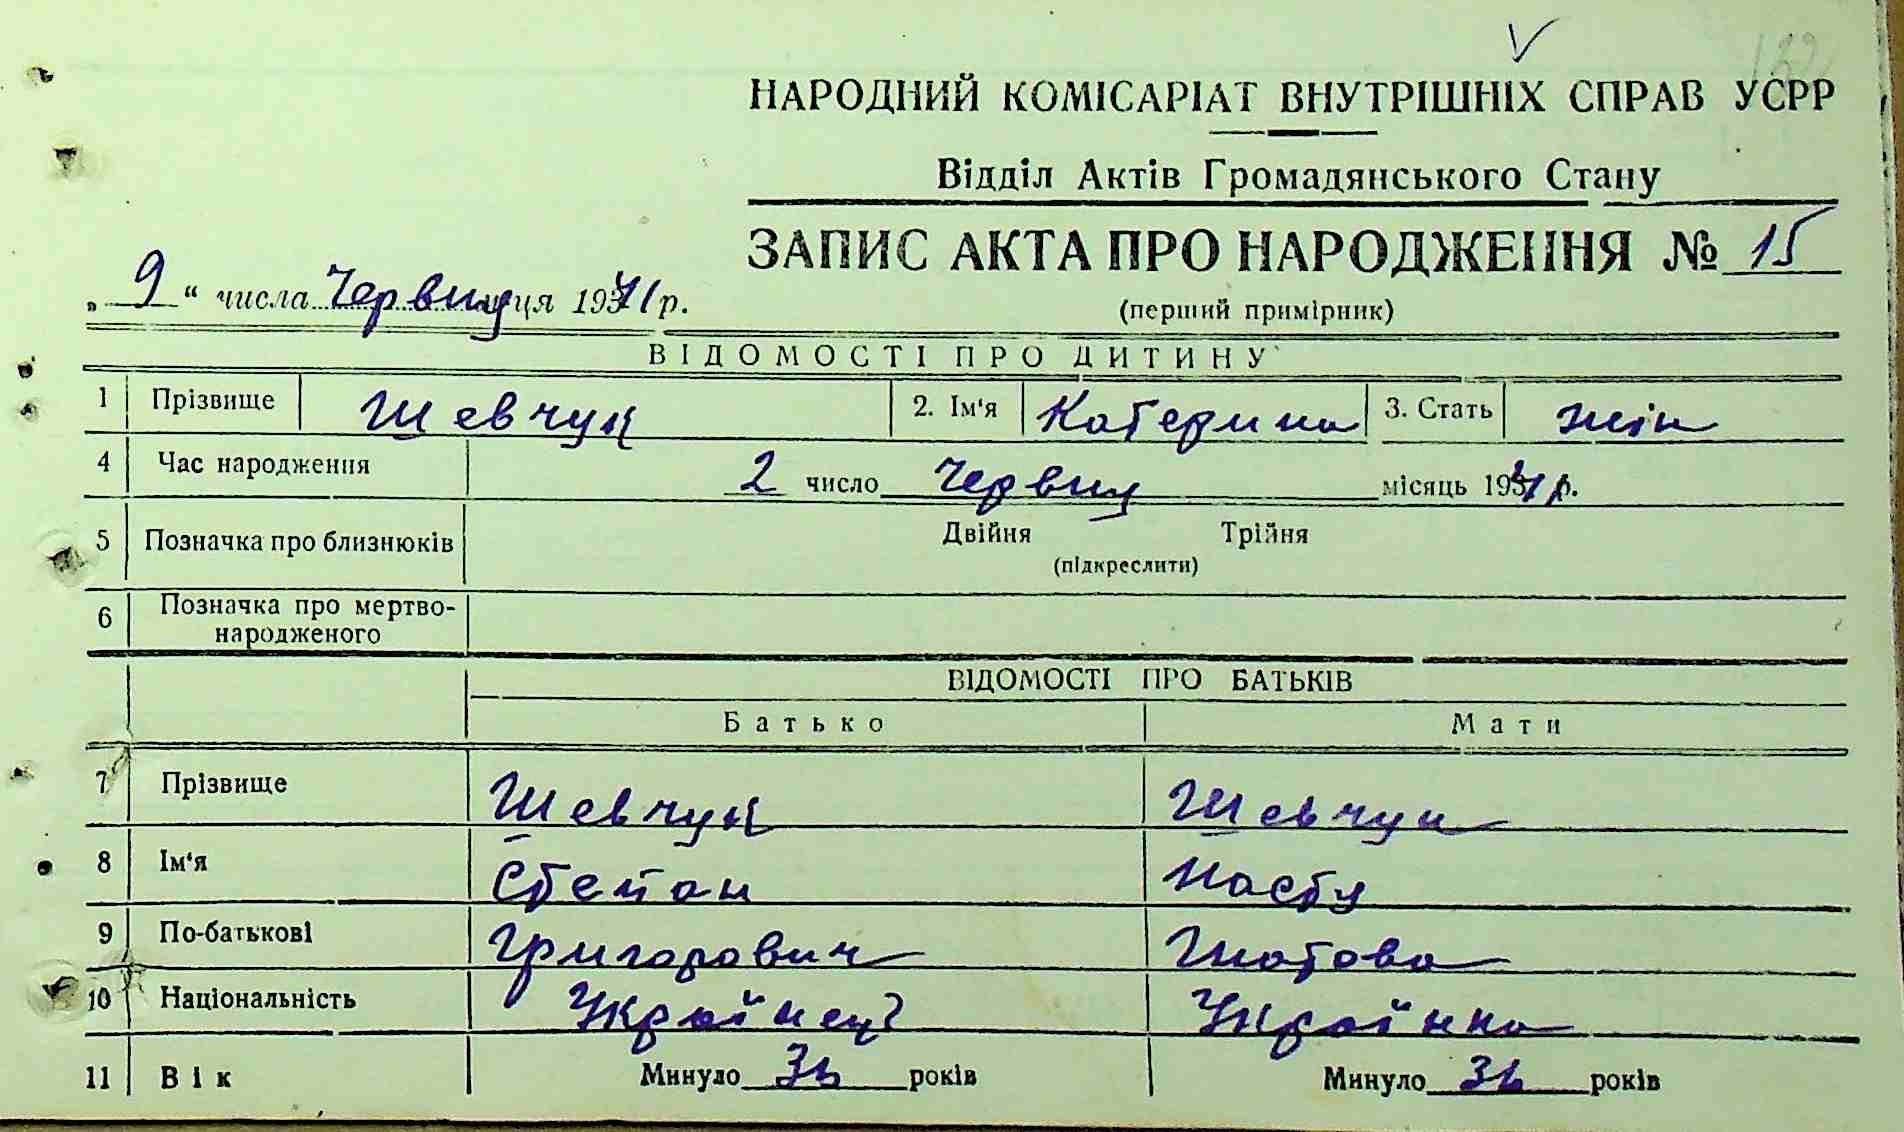 НАРОДНИЙ КОМІСАРІАТ ВНУТРІШНІХ СПРАВ УСРР
Відділ Актів Громадянського Стану
ЗАПИС АКТА ПРО НАРОДЖЕННЯ № 15
(перший примірник)
„ 9 “ числа Червця 1941 р.
ВІДОМОСТІ ПРО ДИТИНУ
1 Прізвище Шевчук 2. Ім'я Катерина 3. Стать жін
4 Час народження 2 число Червця місяць 1941 р.
5 Позначка про близнюків Двійня Трійня
(підкреслити)
6 Позначка про мертво-
народженого
ВІДОМОСТІ ПРО БАТЬКІВ
Батько Мати
7 Прізвище Шевчук Шевчук
8 Ім'я Степан
9 По-батькові Григорович
10 Національність Украйнец Украйнка
11 Вік Минуло років Минуло років